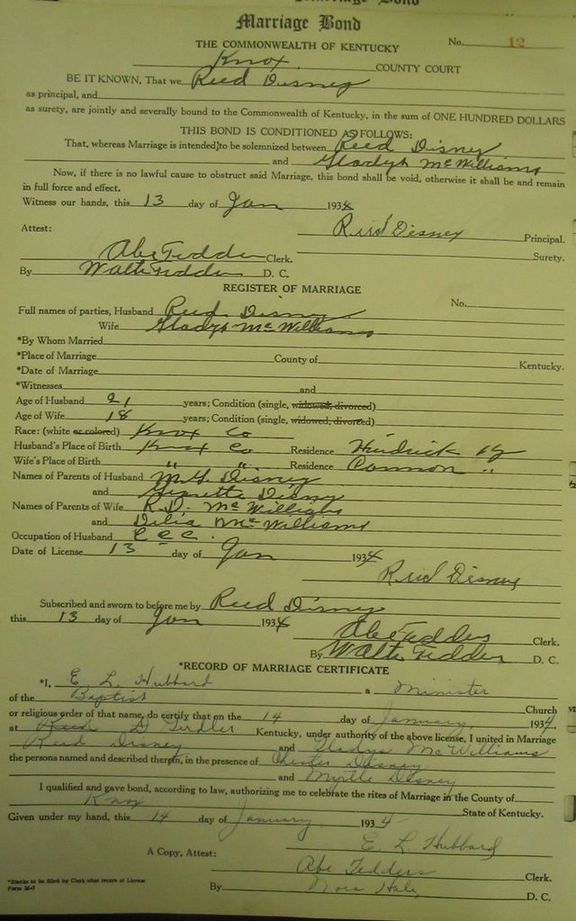 Marriage Bond
Marriage Bond
THE COMMONWEALTH OF KENTUCKY No. 12
Knox COUNTY COURT
BE IT KNOWN, That we Reed Disney
as principal, and
as surety, are jointly and severally bound to the Commonwealth of Kentucky, in the sum of ONE HUNDRED DOLLARS
THIS BOND IS CONDITIONED AS FOLLOWS:
That, whereas Marriage is intended to be solemnized between Reed Disney
and Gladys McWilliams
Now, if there is no lawful cause to obstruct said Marriage, this bond shall be void, otherwise it shall be and remain
in full force and effect.
Witness our hands, this 13 day of Jan 1934
Reid Disney Principal.
Attest:
Surety.
Abe Tedders Clerk.
By Walter Tedders D. C.
REGISTER OF MARRIAGE
No.
Full names of parties, Husband Reed Disney
Wife Gladys McWilliams
*By Whom Married
*Place of Marriage County of Kentucky.
*Date of Marriage
*Witnesses and
Age of Husband 21 years; Condition (single, widowed, divorced)
Age of Wife 18 years; Condition (single, widowed, divorced)
Race: (white or colored) Knox Co
Husband's Place of Birth Knox Co Residence Hendrick Ky
Wife's Place of Birth " " Residence Cannon "
Names of Parents of Husband Disney
and Disney
Names of Parents of Wife R.D. McWilliams
and Delia McWilliams
Occupation of Husband C C C.
Date of License 13 day of Jan 1934
Reid Disney
Subscribed and sworn to before me by Reed Disney
this 13 day of Jan 1934
Abe Tedders Clerk.
By Walter Tedders D. C.
*RECORD OF MARRIAGE CERTIFICATE
*I, E. L. Hubbard a Minister
of the Baptist Church
or religious order of that name, do certify that on the 14 day of January, 1934
at Kentucky, under authority of the above license, I united in Marriage
Reid Disney and Gladys McWilliams
the persons named and described therein, in the presence of Disney
and Myrtle Disney
I qualified and gave bond, according to law, authorizing me to celebrate the rites of Marriage in the County of
Knox State of Kentucky.
Given under my hand, this 14 day of January 1934
E. L. Hubbard
A Copy, Attest: Abe Tedders Clerk.
By Nora Hale D. C.
*Blanks to be filled by Clerk after return of License